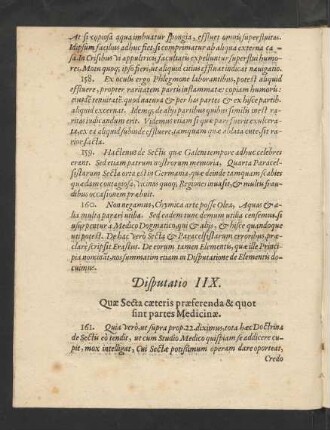 At si copiosa aqua imbuatur spongia, effluet omne superfluum.
Id ipsum facilius adhuc fiet, si comprimatur ab aliqua externa ca-
sa. In Crisibus vi appulsricis facultatis expelluntur superflui humo-
res. Motu quoq; ipso fieri, ut aliquid citius effluat indicat navigatio.
158. Ex oculo ergo Phlegmone laborantibus, potest aliquid
effluere, propter raritatem partis inflammatæ: copiam humoris:
quod natura & per has partes & ex hisce partib.
aliquid excernat. Idemq; de alijs partibus quibus similis inest ra-
ritas iudicandum erit. Videmus etiam si quæ pars fuerit exulcera-
ta, ex ea aliquid subinde effluere, tamquam quæ oblata cute sit ra-
rior facta.
159. Hactenus de Sectis quæ Galeni tempore adhuc celebres
erant. Sed etiam patrum nostrorum memoria Quarta Paracel-
sistarum Secta orta est in Germania, quæ deinde tamquam scabies
quædam contagiosa, vicinas quoq; Regiones invasit, & multis frau-
dibus occasionem præbuit.
160. Non negamus, Chymica arte posse Olea, Aquas & a-
lia multa parari utilia. Sed eadem tunc demum utilia censemus, si
usurpentur a Medico Dogmatico, qui & alijs, & hisce quandoque
uti potest. De hac verò Secta & Paracelsistarum erroribus, præ-
clarè scripsit Erastus. De eorum tamen Elementis, quæ ille Princi-
pia nominat, nos summatim etiam in Disputatione de Elementis do-
cuimus.
Disputatio IIX.
Quæ Secta cæteris præferenda & quot
sint partes Medicinæ.
161. Quia verò, ut supra prop. 22. diximus, tota hæc Doctrina
de Sectis eò tendit, ut cum Studio Medico quispiam se addicere cu-
pit, mox intelligat, Cui Sectæ potissimum operam dare oporteat,
Credo